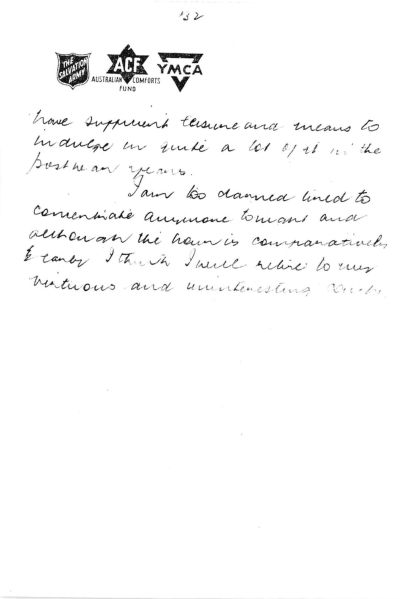 '32
THE SALVATION ARMY
ACF
AUSTRALIAN COMFORTS FUND
YMCA
have sufficient leisure and means to
indulge in quite a lot of it in the
post war years.
I am too damned tired to
concentrate anymore tonight and
although the hour is comparatively
early I think I will retire to my
virtuous and uninteresting